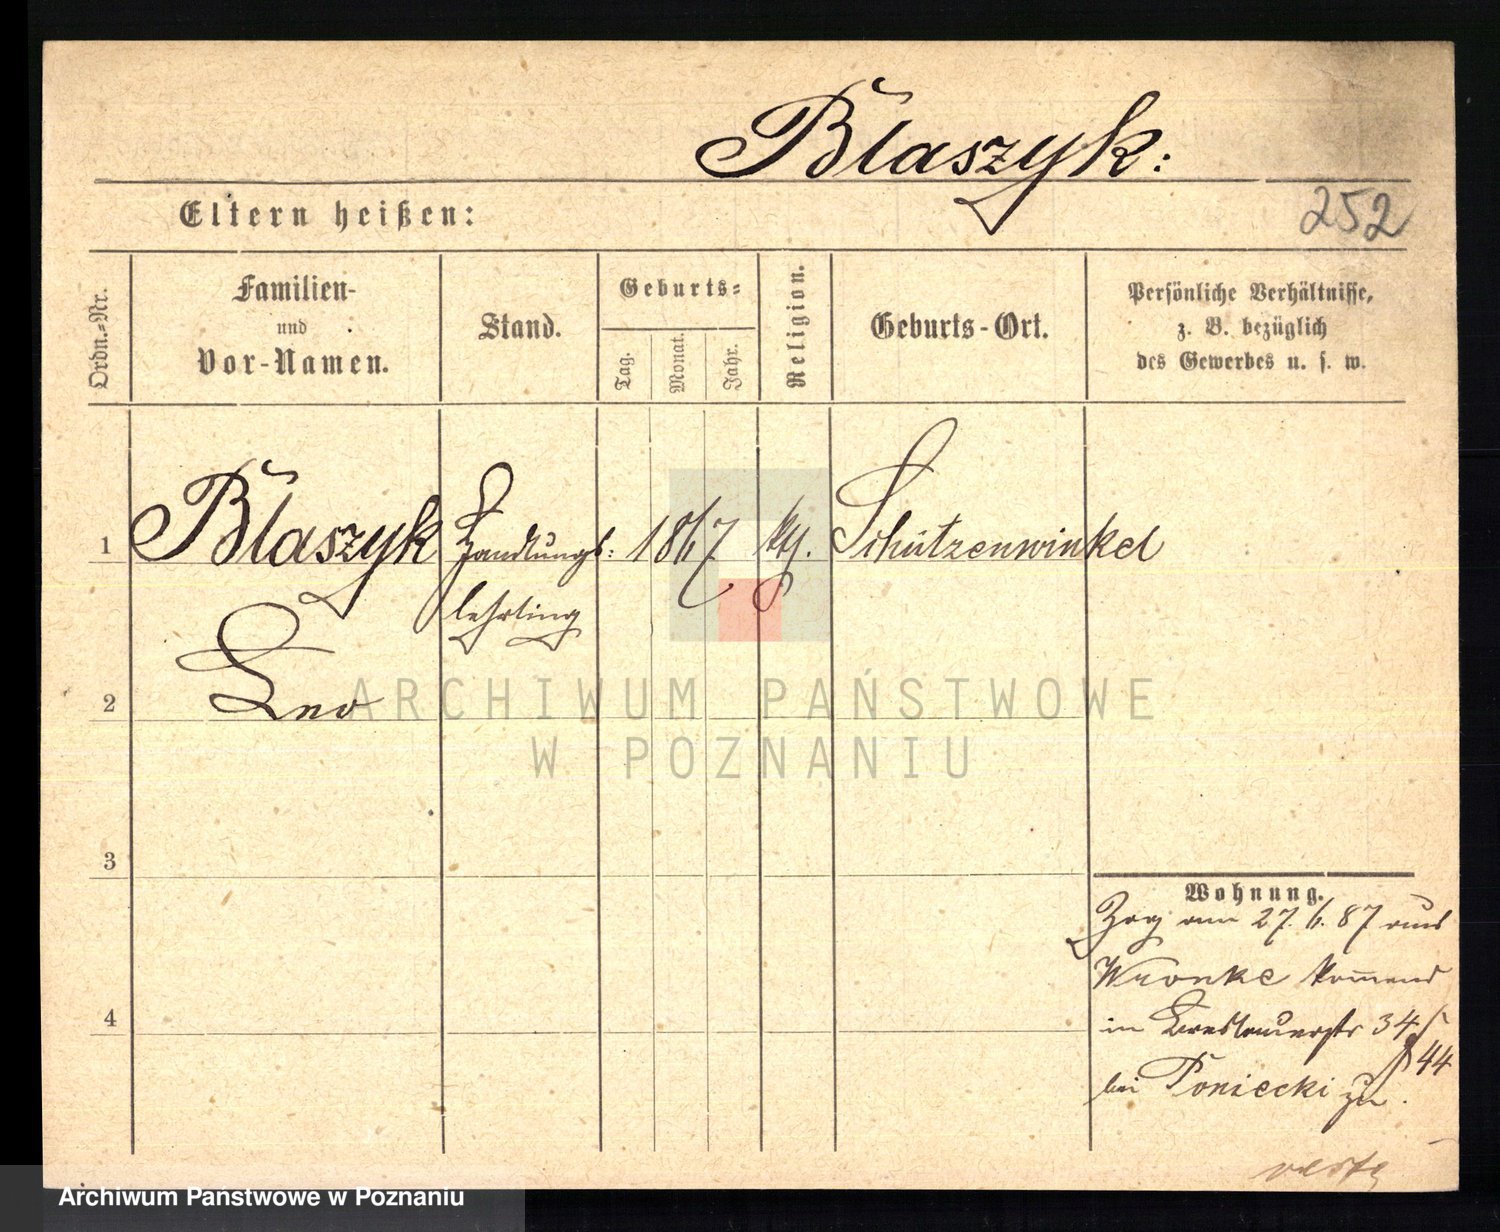 Blaszyk:
Eltern heißen:
252
Ordn.-Nr.
Familien-
und
Vor-Namen.
Stand.
Geburts-
Tag.
Monat.
Jahr.
Religion.
Geburts-Ort.
Persönliche Verhältnisse,
z. B. bezüglich
des Gewerbes u. s. w.
1
Blaszyk
Handlungs-
1867
kth.
Schützenwinkel
lehrling
2
Leo
ARCHIWUM PAŃSTWOWE
W POZNANIU
3
Wohnung.
Zog am 27.6.87 aus
Wronke kommend
4
in Breslauerstr 34/
44
bei Poniecki zu.
Archiwum Państwowe w Poznaniu